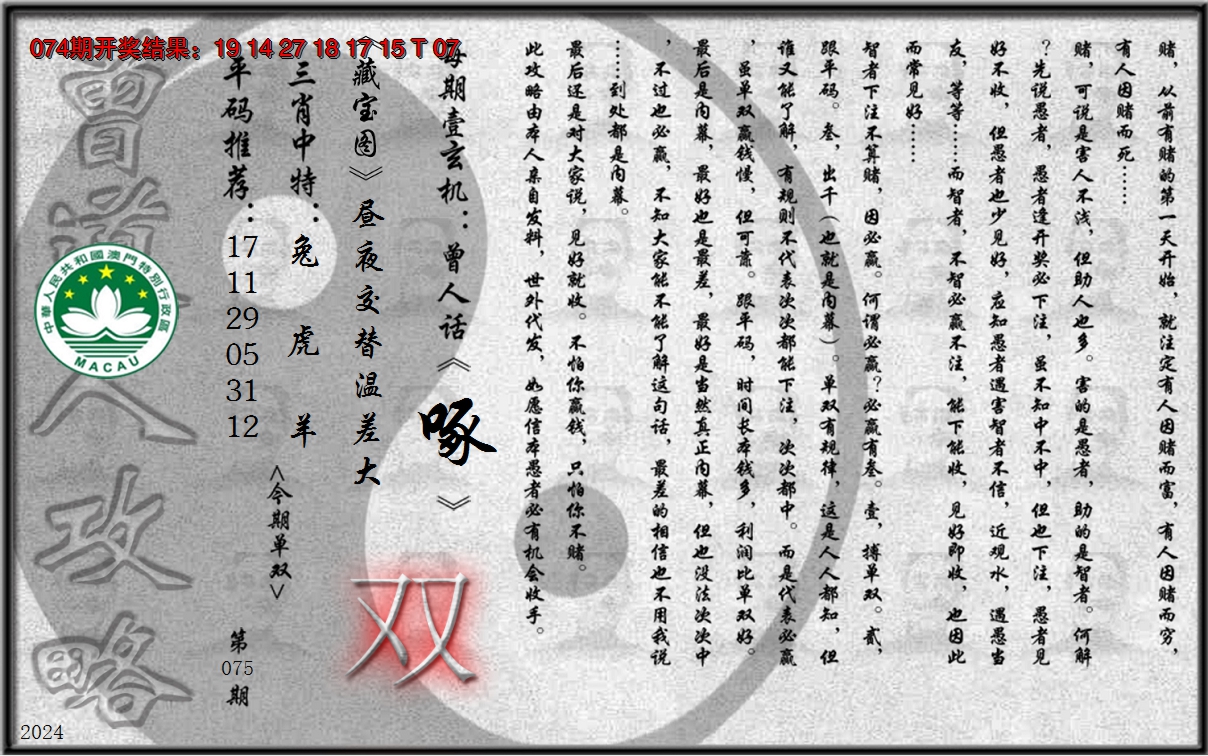 074期开奖结果：19 14 27 18 17 15 T 07
赌，从前有赌的第一天开始，就注定有人因赌而富，有人因赌而穷，
有人因赌而死……
赌，可说是害人不浅，但助人也多。害的是愚者，助的是智者。何解
？先说愚者，愚者逢开奖必下注，虽不知中不中，但也下注，愚者见
好不收，但愚者也少见好，应知愚者遇害智者不信，近观水，遇愚当
友，等等……而智者，不智必赢不注，能下能收，见好即收，也因此
而常见好……
智者下注不算赌，因必赢。何谓必赢？必赢有叁。壹，搏单双。贰，
跟平码。叁，出千（也就是内幕）。单双有规律，这是人人都知，但
谁又能了解，有规则不代表次次都能下注，次次都中。而是代表必赢
，虽单双赢钱慢，但可靠。跟平码，时间长本钱多，利润比单双好。
最后是内幕，最好也是最差，最好是当然真正内幕，但也没法次次中
，不过也必赢，不知大家能不能了解这句话，最差的相信也不用我说
……到处都是内幕。
最后还是对大家说，见好就收。不怕你赢钱，只怕你不赌。
此攻略由本人亲自发料，世外代发，如愿信本愚者必有机会收手。
每期壹玄机：曾人话《啄》
《藏宝图》昼夜交替温差大
三肖中特：兔 虎 羊
平码推荐：17 11 29 05 31 12
<今期单双>
双
第075期
曾道人攻略
中華人民共和國澳門特別行政區
MACAU
2024